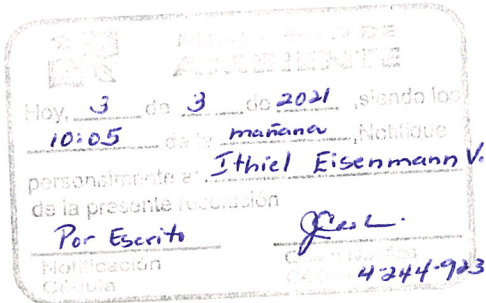 AMBIENTE
Hoy, 3 de 3 de 2021, siendo las
10:05 de la mañana, Notifique
personalmente a: Ithiel Eisenmann V.
de la presente resolución
Por Escrito
Notificación
Cédula 4-244-923